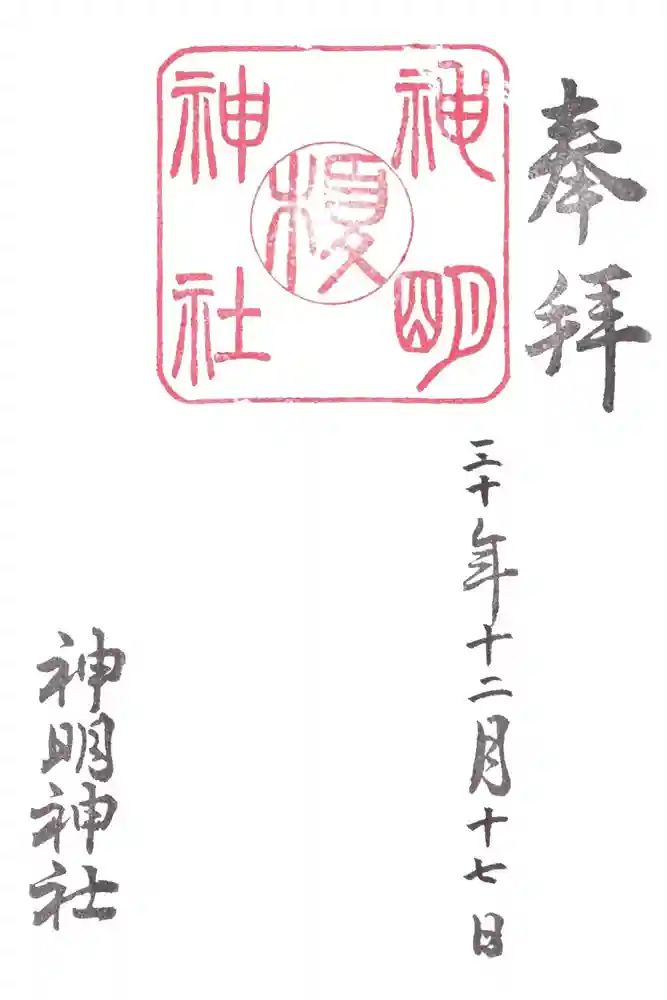 奉拝
三十年十二月十七日
神明
榎
神社
神明神社